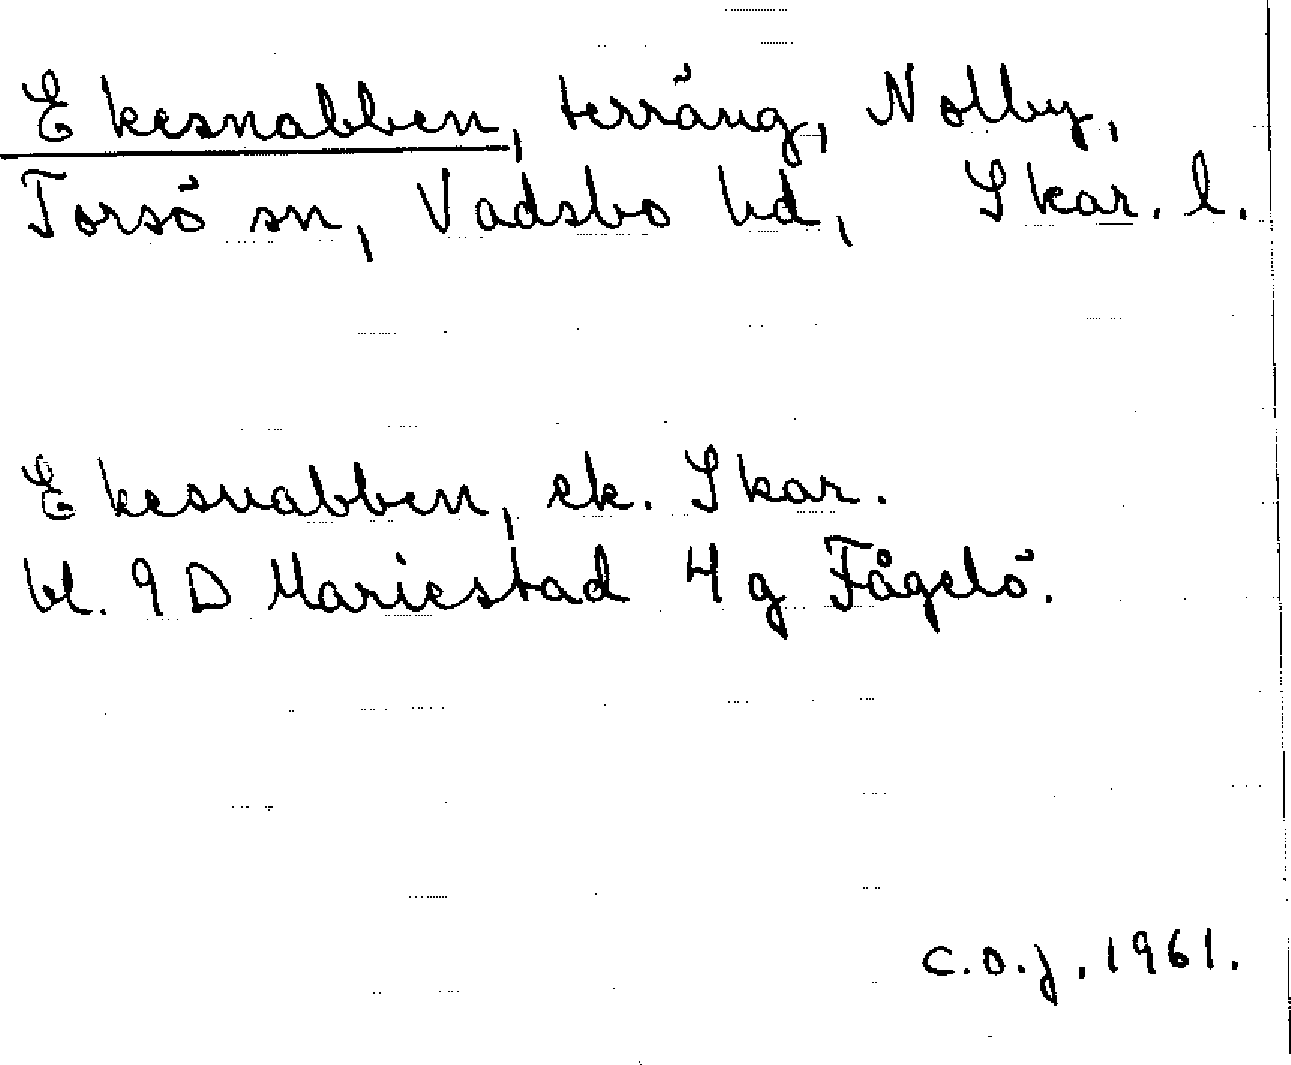 Ekesnabben, terräng, Nolby,
Torsö sn, Vadsbo hd, Skar. l.
Ekesnabben, ek. Skar.
bl. 9D Mariestad 4g Fågelö.
C.O.J. 1961.